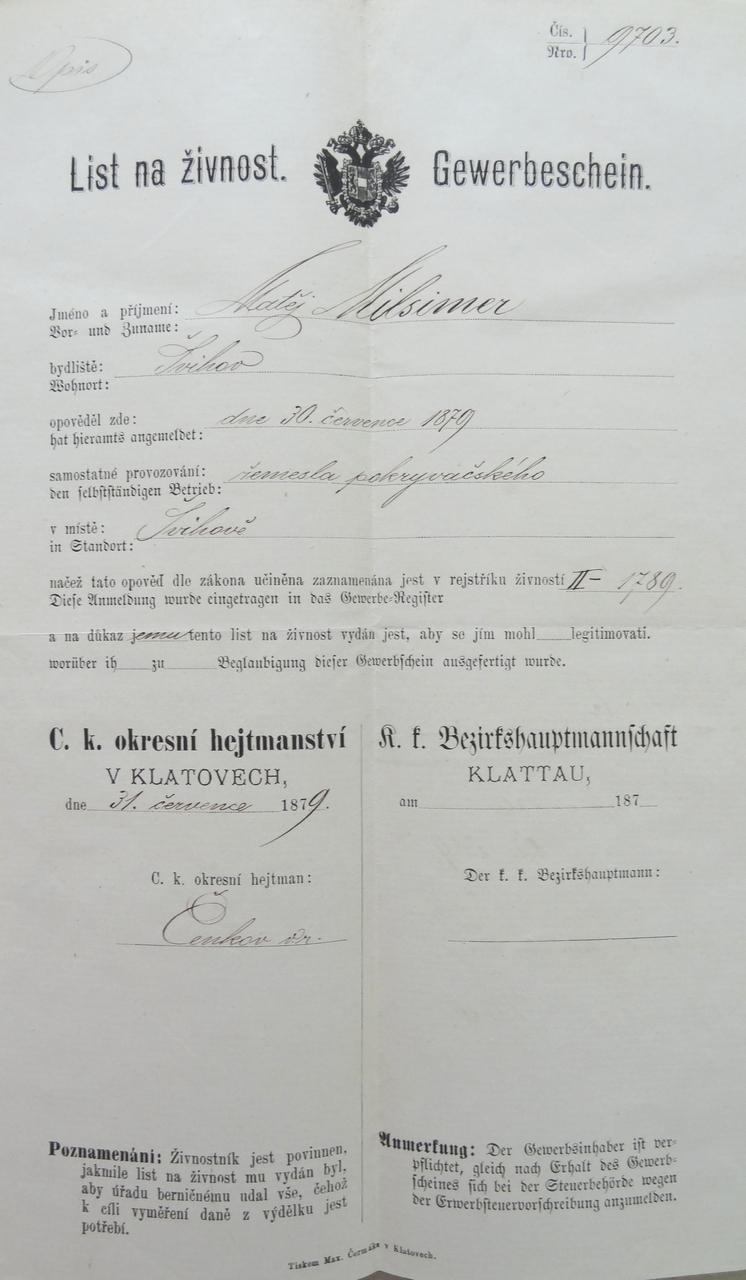 Opis
Čís. 9703.
Nro.
List na živnost. Gewerbeschein.
Jméno a příjmení: Matěj Milsimer
Vor- und Zuname:
bydliště: Švihov
Wohnort:
opověděl zde: dne 30. července 1879
hat hieramts angemeldet:
samostatné provozování: řemesla pokryvačského
den selbstständigen Betrieb:
v místě: Švihově
in Standort:
načež tato opověď dle zákona učiněna zaznamenána jest v rejstříku živností II– 1789.
Diese Anmeldung wurde eingetragen in das Gewerbe-Register
a na důkaz jemu tento list na živnost vydán jest, aby se jím mohl legitimovati.
worüber ih zu Beglaubigung dieser Gewerbschein ausgefertigt wurde.
C. k. okresní hejtmanství
V KLATOVECH,
dne 31. července 1879.
C. k. okresní hejtman:
Čenkov dr.
K. k. Bezirkshauptmannschaft
KLATTAU,
am 187
Der k. k. Bezirkshauptmann:
Poznamenání: Živnostník jest povinnen,
jakmile list na živnost mu vydán byl,
aby úřadu berničnému udal vše, čehož
k cíli vyměření daně z výdělku jest
potřebí.
Anmerkung: Der Gewerbsinhaber ist ver-
pflichtet, gleich nach Erhalt des Gewerb-
scheines sich bei der Steuerbehörde wegen
der Erwerbsteuervorschreibung anzumelden.
Tiskem Max. Čermáka v Klatovech.